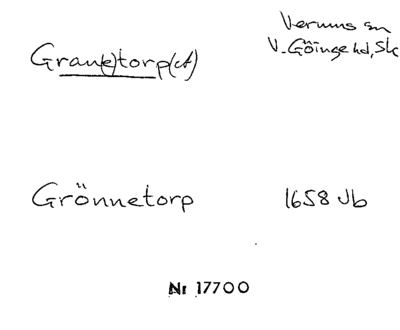 Verums sn
Gran(e)torp(et)
V. Göinge hd, Sk
Grönnetorp
1658 Jb
Nr 17700